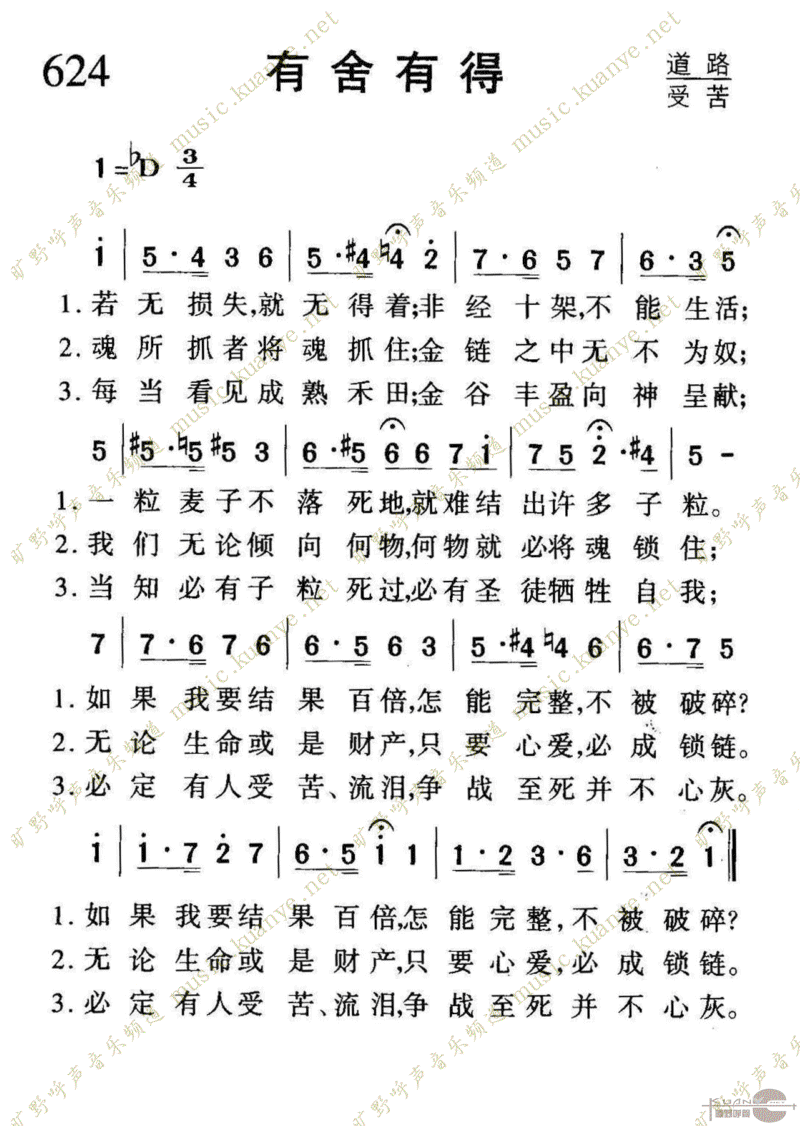 624 有舍有得 道路
受苦
1=♭D 3/4
i | 5·4 3 6 | 5·#4 ♮4 2̇ | 7·6 5 7 | 6·3 5
1.若无损失,就无得着;非经十架,不能生活;
2.魂所抓者将魂抓住;金链之中无不为奴;
3.每当看见成熟禾田;金谷丰盈向神呈献;
5 | #5·♮5 5 3 | 6·#5 6 6 7 i | 7 5 2̇·#4 | 5 -
1.一粒麦子不落死地,就难结出许多子粒。
2.我们无论倾向何物,何物就必将魂锁住;
3.当知必有子粒死过,必有圣徒牺牲自我;
7 | 7·6 7 6 | 6·5 6 3 | 5·#4 ♮4 6 | 6·7 5
1.如果我要结果百倍,怎能完整,不被破碎?
2.无论生命或是财产,只要心爱,必成锁链。
3.必定有人受苦、流泪,争战至死并不心灰。
i | i·7 2̇ 7 | 6·5 i 1 | 1·2 3·6 | 3·2 1 ‖
1.如果我要结果百倍,怎能完整,不被破碎?
2.无论生命或是财产,只要心爱,必成锁链。
3.必定有人受苦、流泪,争战至死并不心灰。
旷野呼声音乐频道 music.kuanye.net